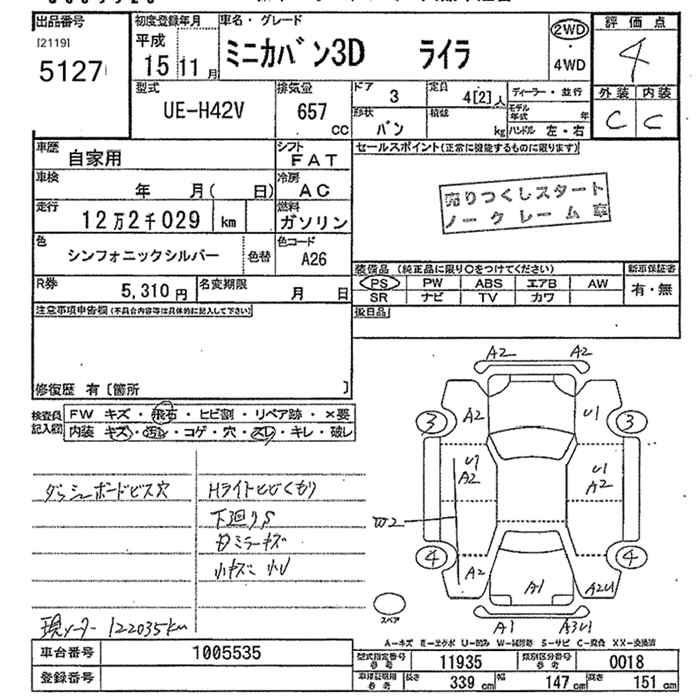 出品番号
[2119]
5127
初度登録年月
平成
15 11月
車名・グレード
ミニカバン3D ライラ
2WD
・
4WD
評価点
4
外装 内装
C C
型式
UE-H42V
排気量
657
CC
ドア
3
定員
4[2]人
ディーラー・並行
形状
バン
積載
kg
モデル年式 年
ハンドル 左・右
車歴
自家用
シフト
FAT
車検
年 月( 日)
冷房
AC
走行
12万2千029 km
燃料
ガソリン
色
シンフォニックシルバー
色替
色コード
A26
R券
5,310円
名変期限
月 日
セールスポイント(正常に機能するものに限ります)
売りつくしスタート
ノークレーム車
装備品 (純正品に限り○をつけてください)
PS PW ABS エアB AW
SR ナビ TV カワ
新車保証書
有・無
後日品
注意事項申告欄(不具合内容等は具体的に記入して下さい)
修復歴 有〔箇所 〕
検査員
記入欄
FW キズ・飛石・ヒビ割・リペア跡・×要
内装 キズ・汚レ・コゲ・穴・スレ・キレ・破レ
ダッシュボードビス穴
Hライトヒビくもり
下廻りS
ミラーキズ
小キズ 小U
現メーター 122035km
A2 A2
A2 U1
3 3
U1 A2
U1 A2
W2
4 4
A2 A1 A2U1
A1 A3U1
スペア
A-キズ E-エクボ U-凹み W-補修跡 S-サビ C-腐食 XX-交換済
車台番号
1005535
登録番号
型式指定番号
参考
11935
類別区分番号
参考
0018
車検証記載
参考
長さ
339 cm
幅
147 cm
高さ
151 cm